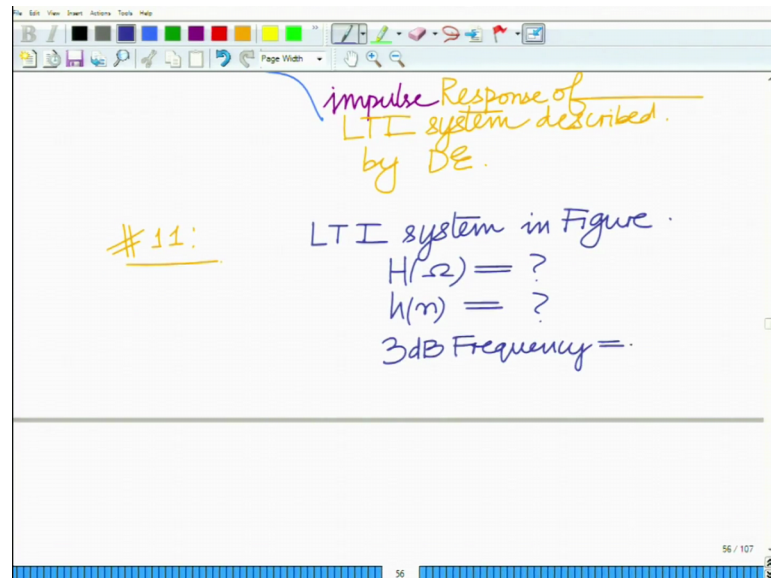 File Edit View Insert Actions Tools Help
B I
Page Width
impulse Response of
LTI system described.
by DE.
#11:
LTI system in Figure.
H(Ω) = ?
h(n) = ?
3dB Frequency =.
56 / 107
56